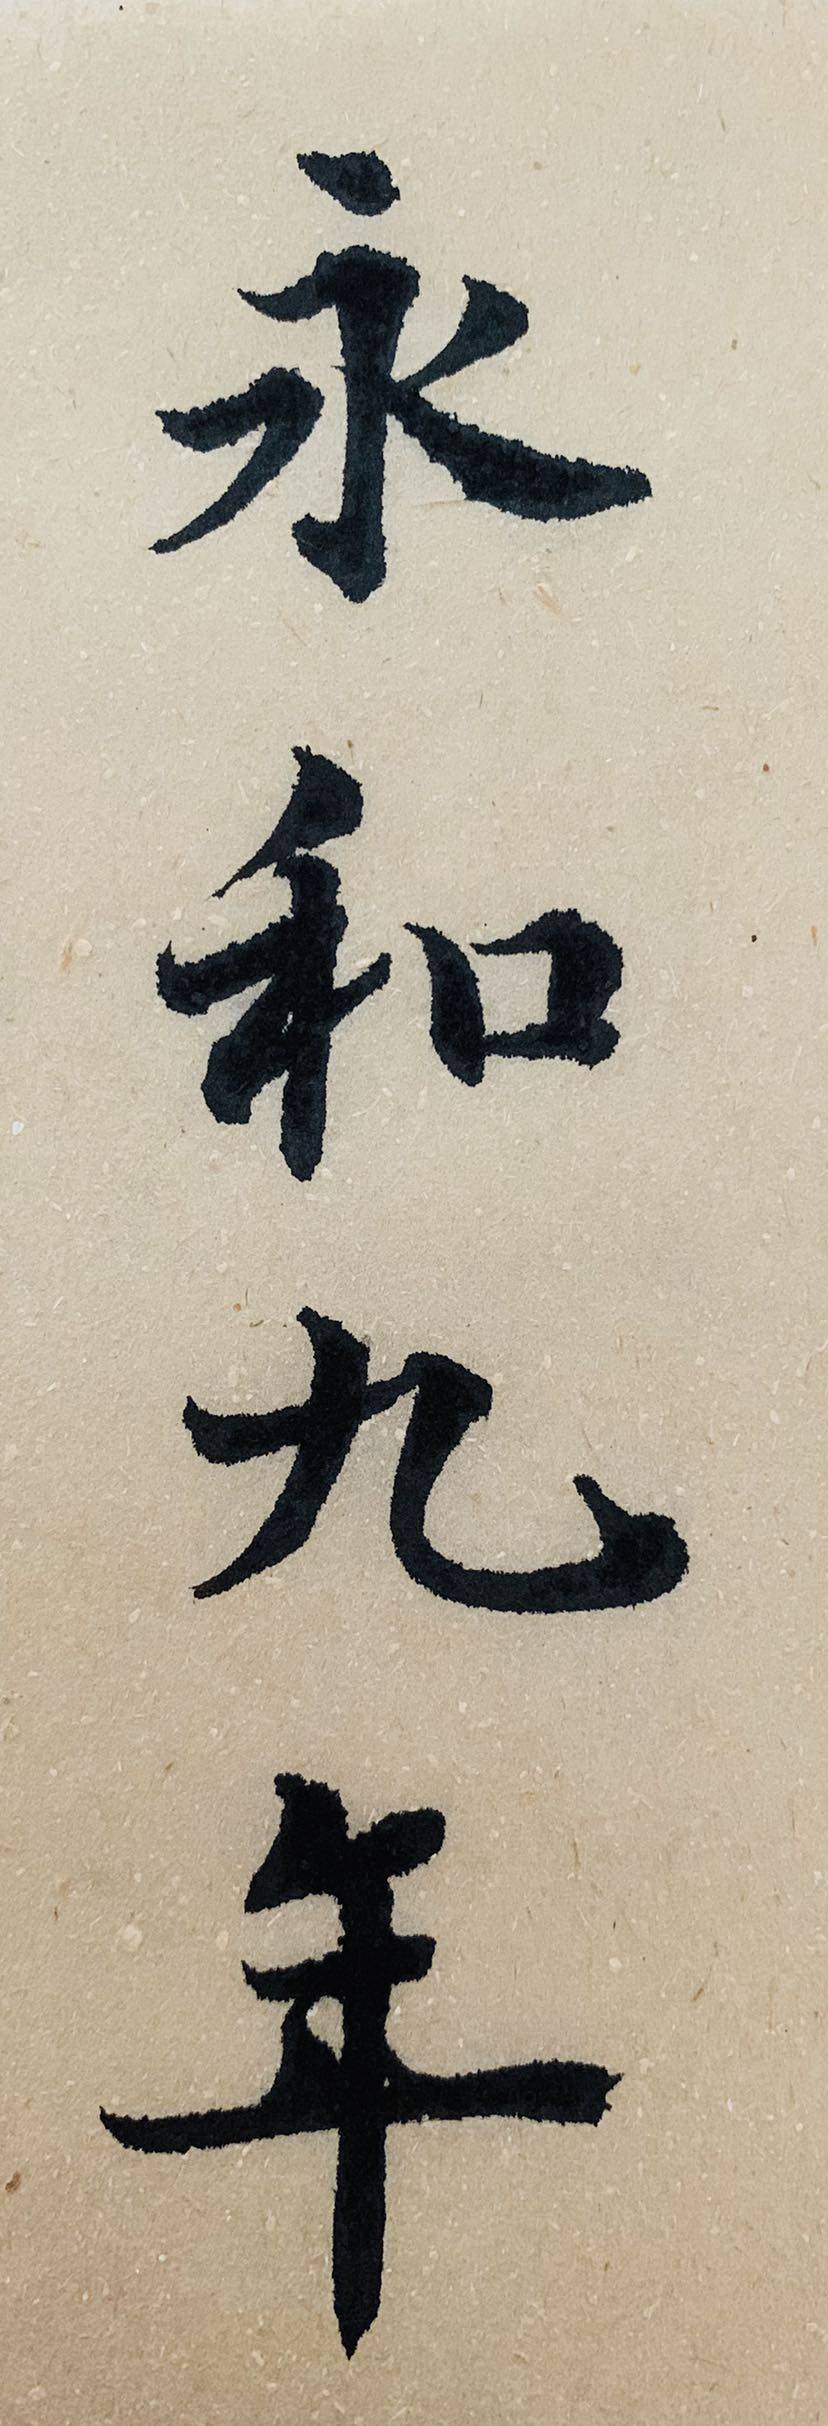 永和九年